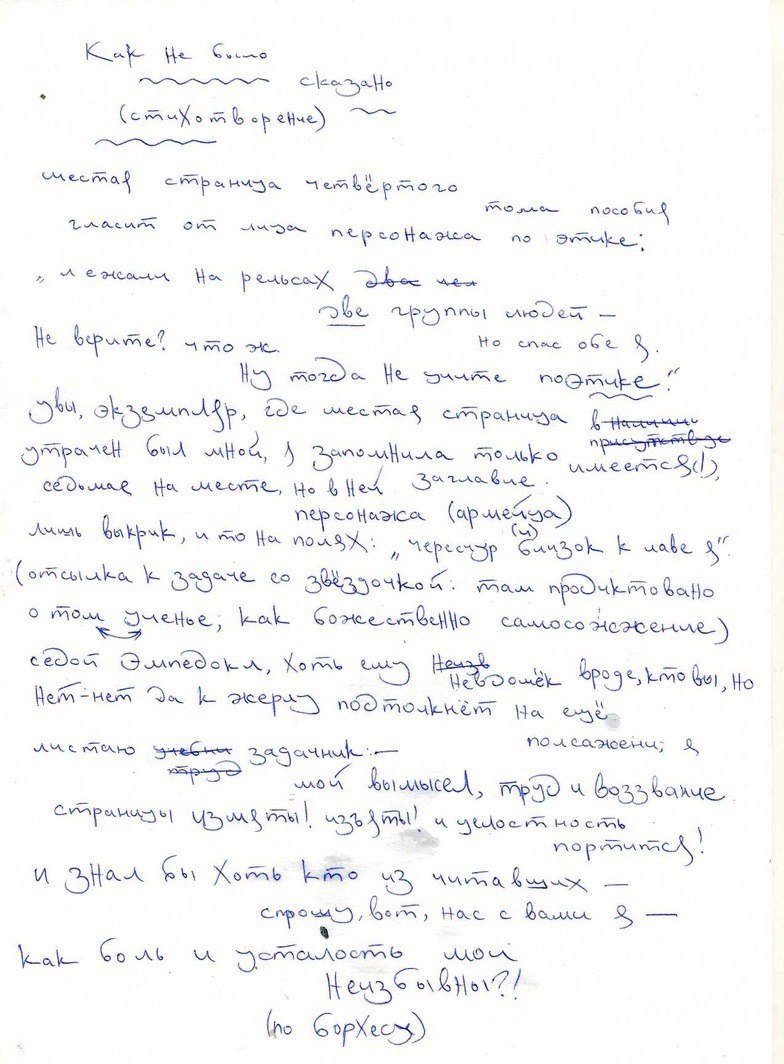 Как не было
сказано
(стихотворение)
шестая страница четвёртого
тома пособия
гласит от лица персонажа по этике:
„лежали на рельсах два чел
две группы людей —
Не верите? что ж
но спас обе я.
Ну тогда не учите поэтике."
увы, экземпляр, где шестая страница в наличии
присутствуе
утрачен был мной, я запомнила только имеется(!),
заглавие.
седьмая на месте, но в ней
персонажа (армейца)
лишь выкрик, и то на полях: „чересчур (и) близок к лаве я".
(отсылка к задаче со звёздочкой: там продиктовано
о том ученье, как божественно самосожжение)
седой Эмпедокл, хоть ему Неизв
невдомёк вроде, кто вы, но
нет-нет да к жерлу подтолкнёт на ещё
полсажени; я
листаю учебни задачник: —
труд
мой вымысел, труд и воззвание
страницы измяты! изъяты! и целостность
портится!
и знал бы хоть кто из читавших —
спрошу, вот, нас с вами я —
как боль и усталость мои
неизбывны?!
(по Борхесу)